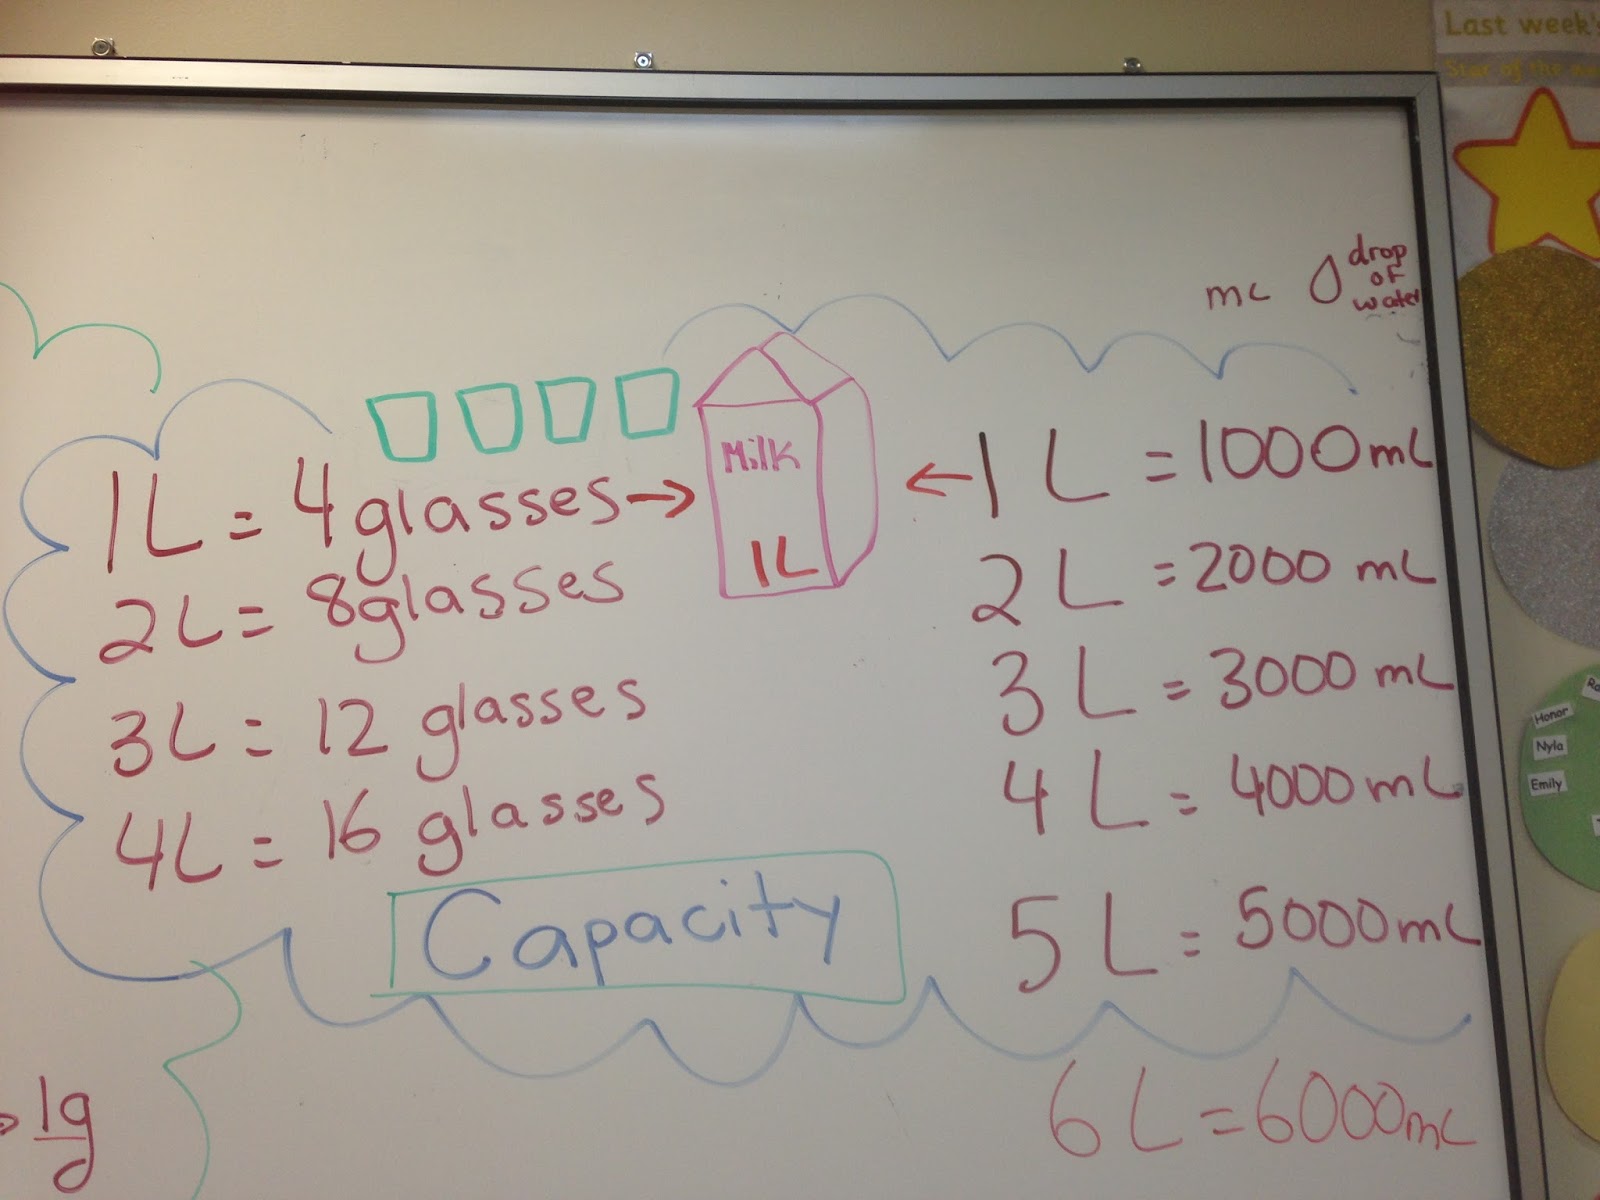 Last week's
Star of the
mL drop
of
water
1L = 4 glasses → Milk ← 1 L = 1000 mL
1L
2L = 8 glasses 2 L = 2000 mL
3L = 12 glasses 3 L = 3000 mL
4L = 16 glasses 4 L = 4000 mL
Capacity
5 L = 5000 mL
6 L = 6000 mL
1g
Honor
Nyla
Emily